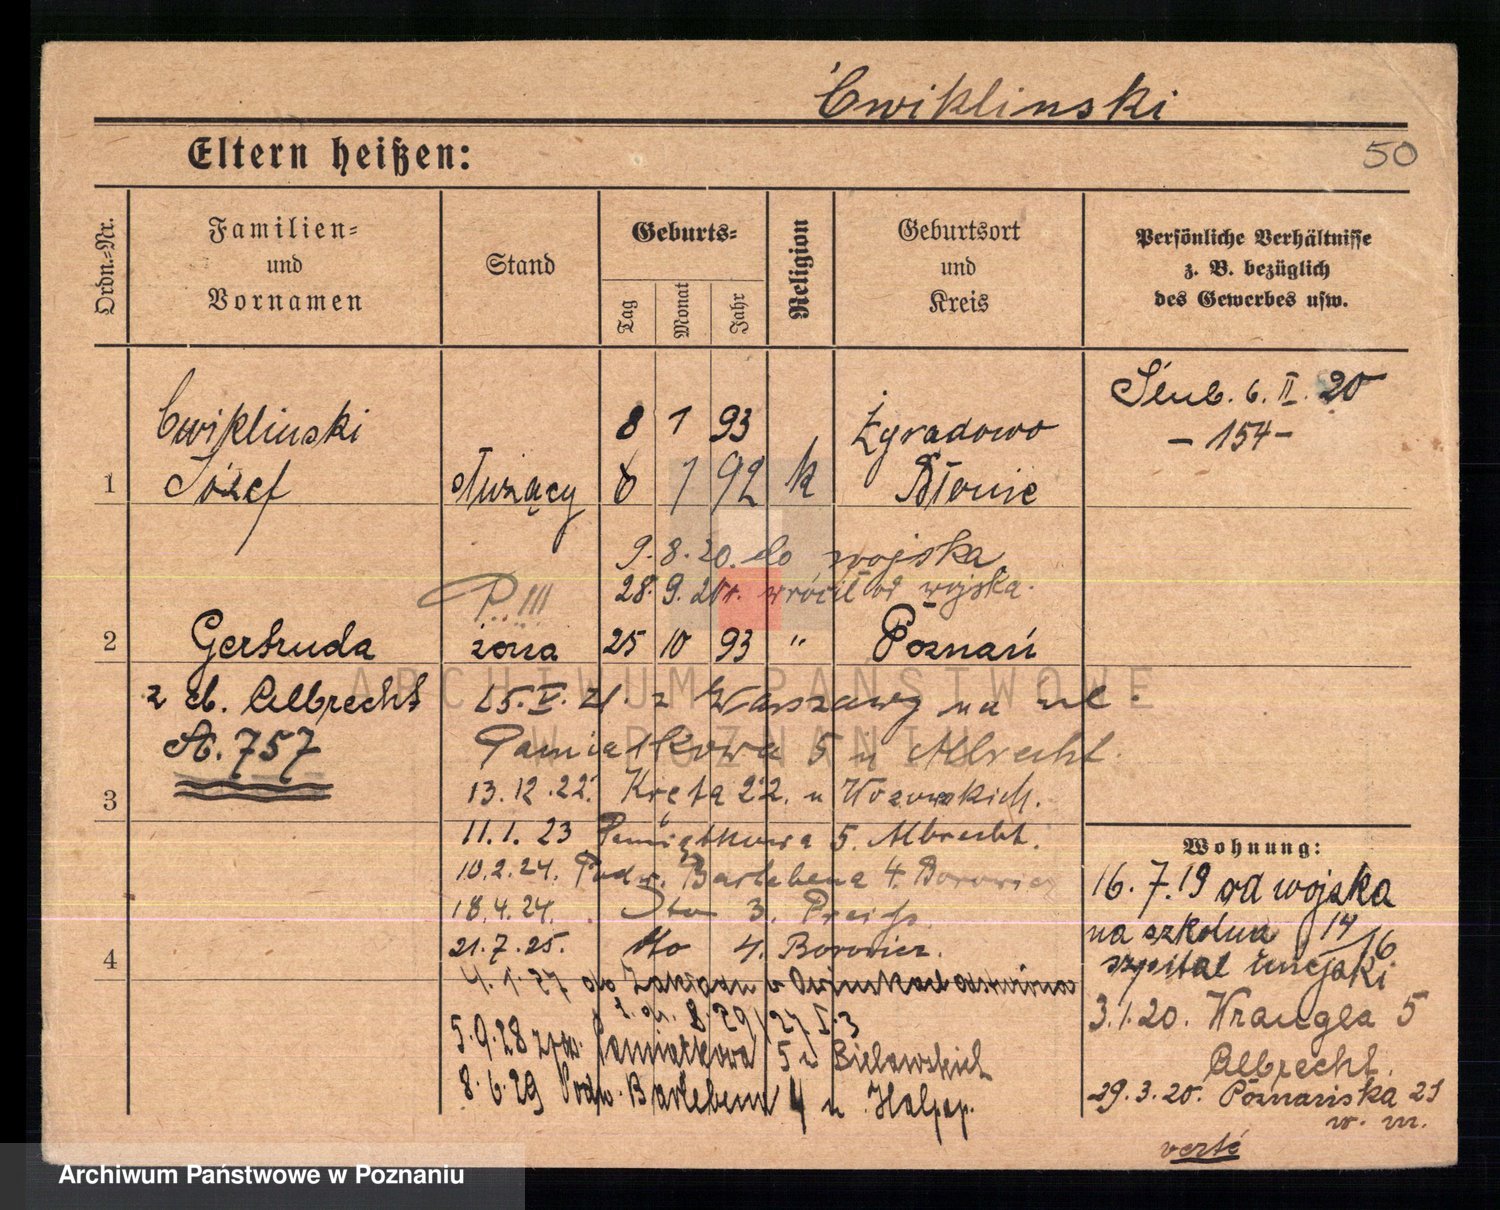 Cwiklinski
Eltern heißen:
50
Ordn.-Nr.
Familien-
und
Vornamen
Stand
Geburts-
Tag
Monat
Jahr
Religion
Geburtsort
und
Kreis
Persönliche Verhältnisse
z. B. bezüglich
des Gewerbes usw.
Cwiklinski
8 1 93
Żyradowo
Ślub. 6. II. 20
- 154 -
1 Józef służący 6 1 92 k Błonie
9. 8. 20. do wojska
28. 9. 20r. wrócił od wojska.
P. !!!
2 Gertruda żona 25 10 93 " Poznań
z d. Albrecht
15. V. 21. z Warszawy na ul.
A. 757
Pamiątkowa 5 u Albrecht.
3
13. 12. 22. Kręta 22. u
11. 1. 23 Pamiątkowa 5. Albrecht.
10. 2. 24. Podw. Bartebena 4. Borowicz
18. 4. 24. Sto 3. Preiss.
21. 7. 25. 4. Borowicz.
4
4. 1. 27 do
27 I. 3
5. 9. 28 Pamiątkowa 5 u Bielawskich
8. 6. 29 Podw. Bartebena 4 u
Wohnung:
16. 7. 19 od wojska
na szkolna 14/16
szpital miejski
3. 1. 20. Wrangla 5
Albrecht.
29. 3. 20. Poznańska 21
w. m.
verte
ARCHIWUM PAŃSTWOWE
W POZNANIU
Archiwum Państwowe w Poznaniu